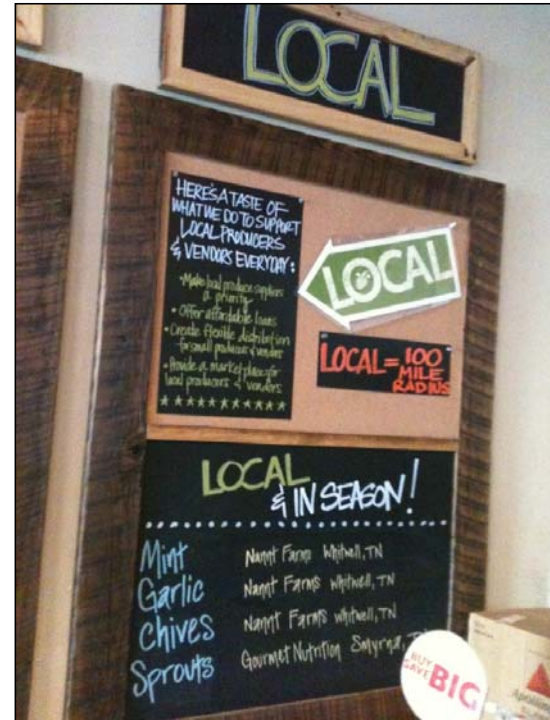 LOCAL
HERE'S A TASTE OF
WHAT WE DO TO SUPPORT
LOCAL PRODUCERS
& VENDORS EVERYDAY:
• Make local produce suppliers
a priority
• Offer affordable loans
• Create flexible distribution
for small producers & vendors
• Provide a marketplace for
local producers & vendors
LOCAL
LOCAL = 100
MILE
RADIUS
LOCAL
& IN SEASON!
Mint Nannt Farms Whitwell, TN
Garlic Nannt Farms Whitwell, TN
Chives Nannt Farms Whitwell, TN
Sprouts Gourmet Nutrition Smyrna, T
BUY
SAVE BIG